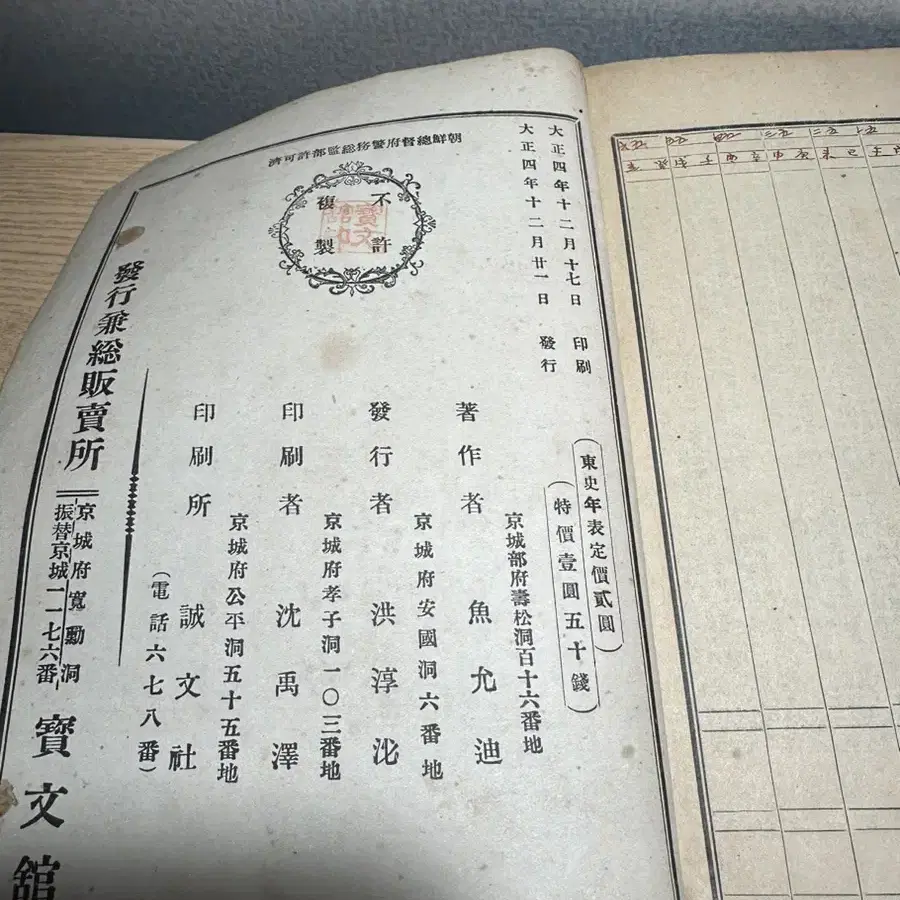 大正四年十二月十七日 印刷
大正四年十二月廿一日 發行
朝鮮總督府警務総監部許可濟
不許
複製
東史年表定價貳圓
特價壹圓五十錢
京城部府壽松洞百十六番地
著作者 魚允迪
京城府安國洞六番地
發行者 洪淳沘
京城府孝子洞一〇三番地
印刷者 沈禹澤
京城府公平洞五十五番地
印刷所 誠文社
(電話六七八番)
發行兼総販賣所
京城府寬勳洞
振替京城一一七六番
寶文舘